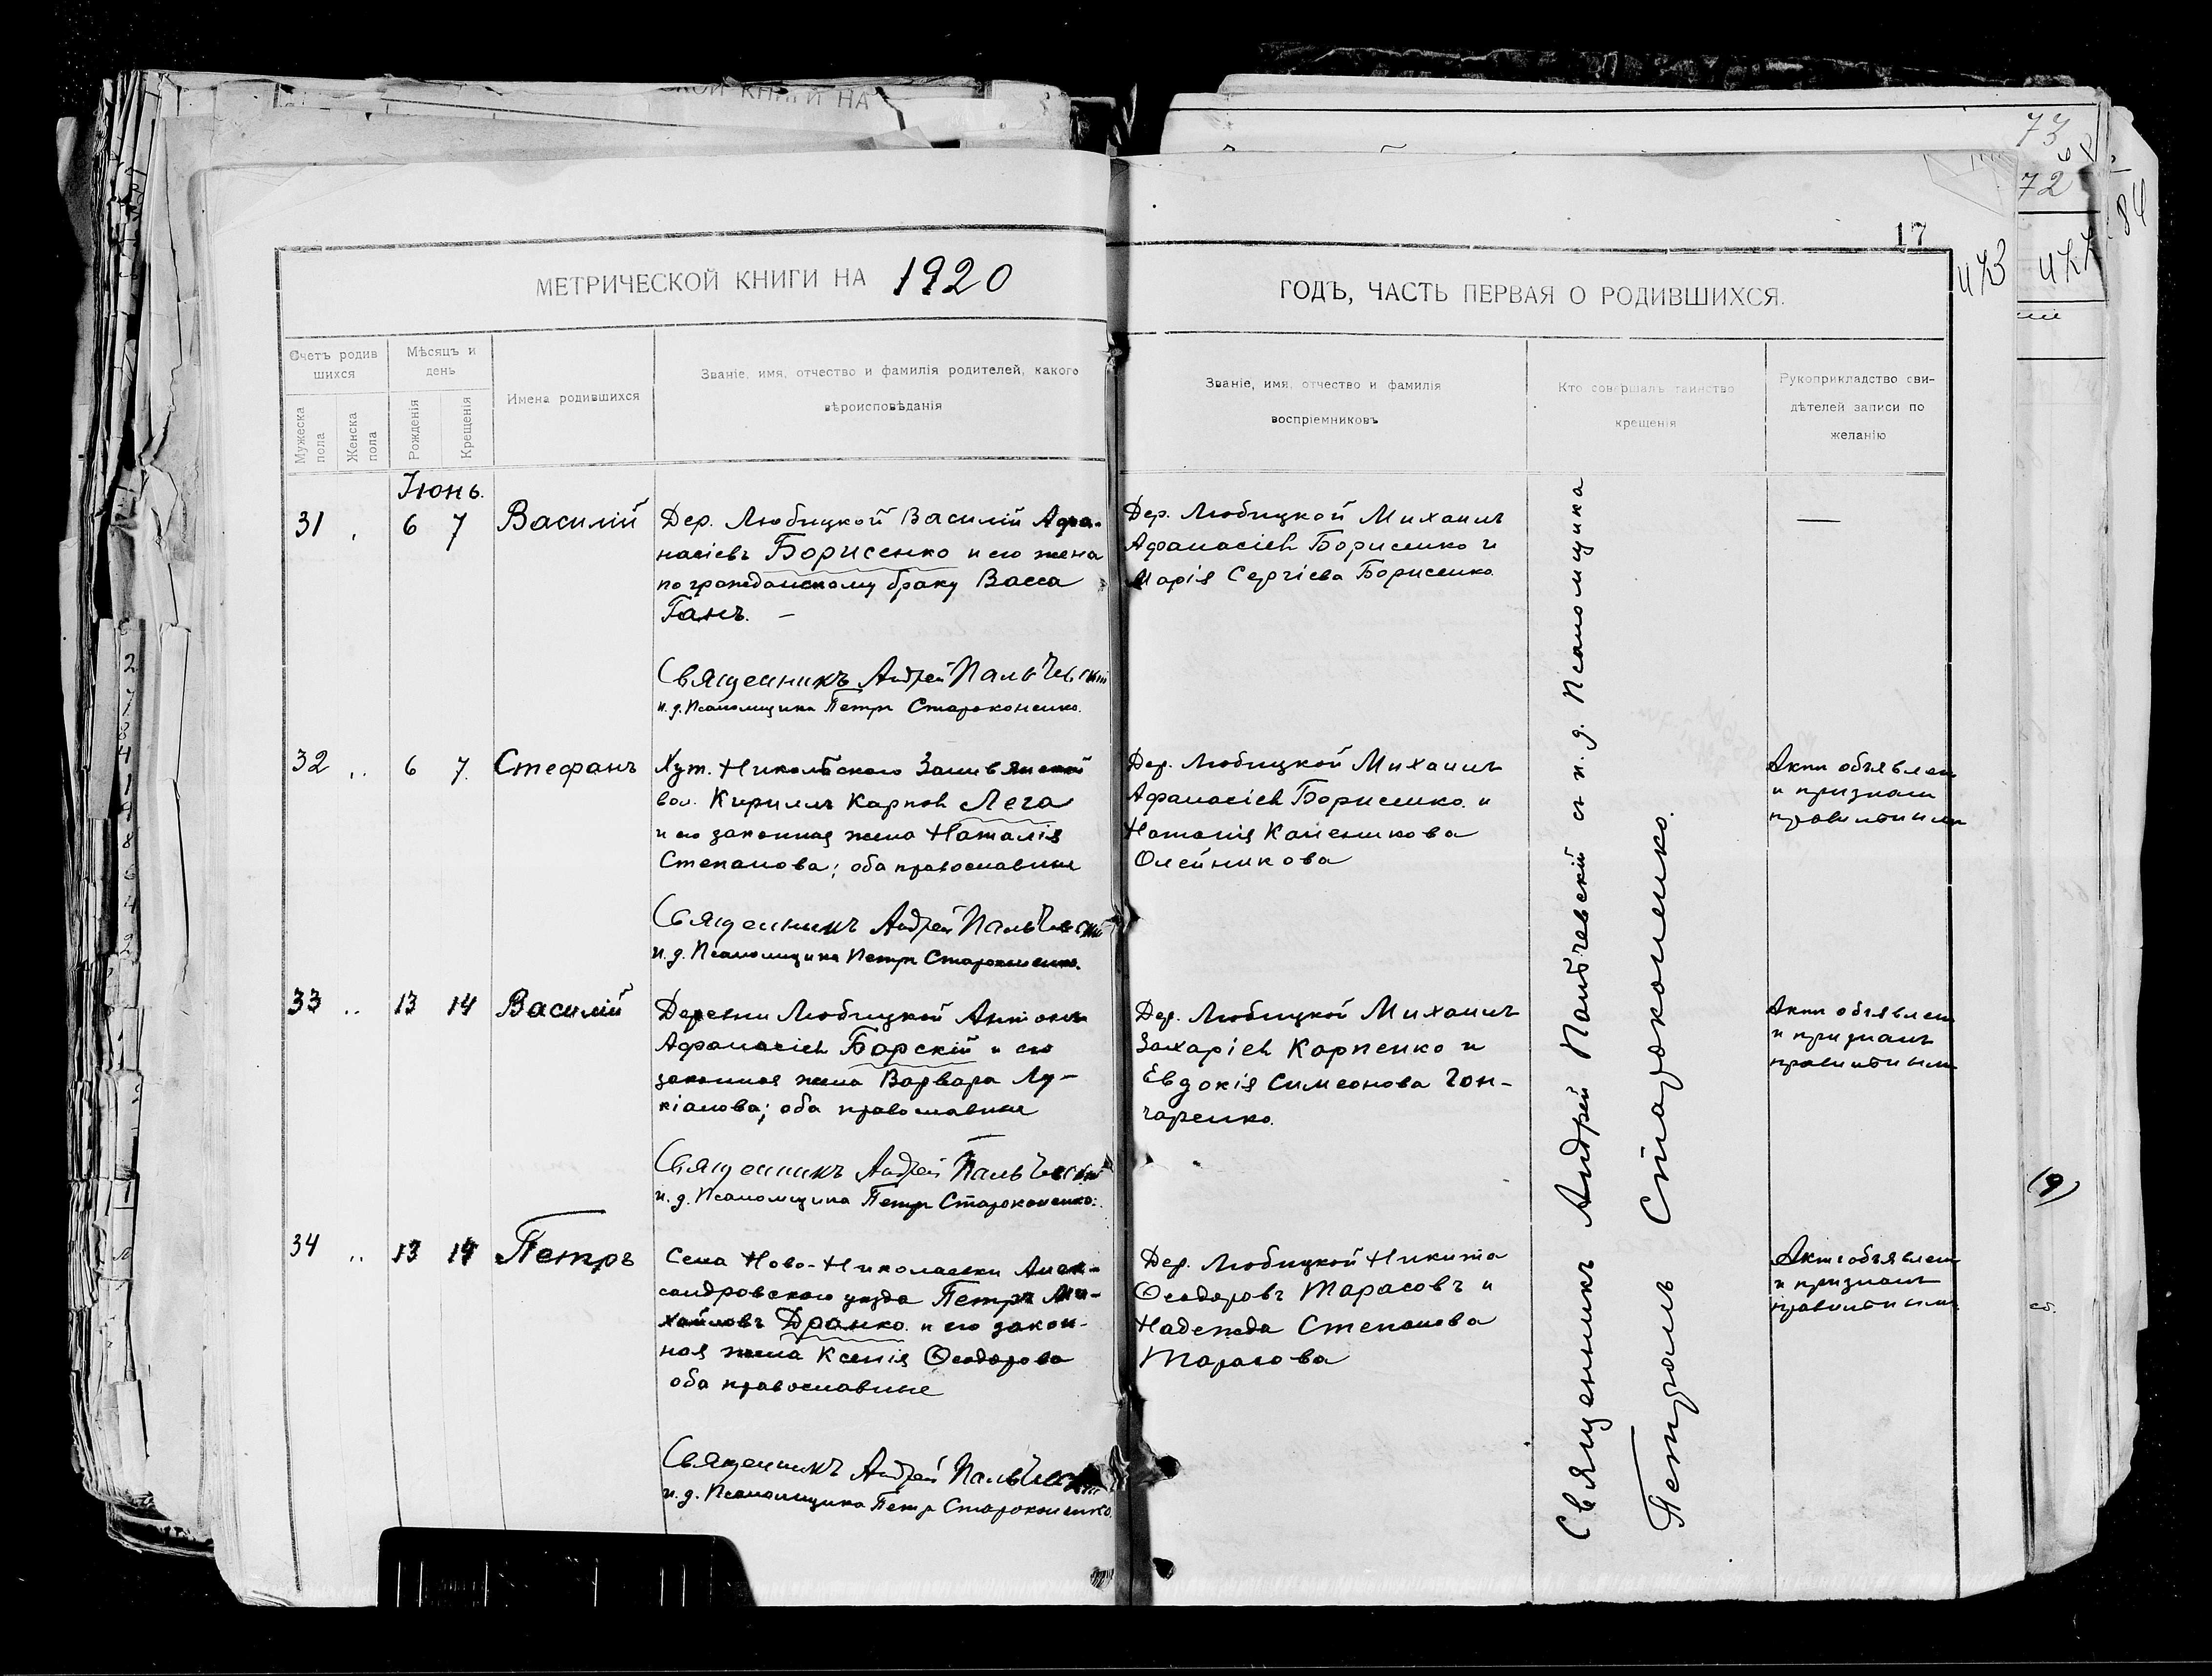 КОЙ КНИГИ НА
73
72
84
17
473
МЕТРИЧЕСКОЙ КНИГИ НА 1920
ГОДЪ, ЧАСТЬ ПЕРВАЯ О РОДИВШИХСЯ.
Счетъ родив
шихся
Мужеска
пола
Женска
пола
Мѣсяцъ и
день
Рожденія
Крещенія
Имена родившихся
Званіе, имя, отчество и фамилія родителей, какого
вѣроисповѣданія
Званіе, имя, отчество и фамилія
воспріемниковъ
Кто совершалъ таинство
крещенія
Рукоприкладство сви-
дѣтелей записи по
желанію
Іюнь.
31 6 7 Василій
Дер. Любицкой Василій Афа-
насіевъ Борисенко и его жена
по гражданскому браку Васса
Ганъ. —
Священникъ Андрей Пальчевскій
и. д. Псаломщика Петръ Староконенко.
Дер. Любицкой Михаилъ
Афанасіев Борисенко и
Марія Сергіева Борисенко
—
32 6 7. Стефанъ
Хут. Никольскаго
вол. Кириллъ Карпов Лега
и его законная жена Наталія
Степанова; оба православные
Священникъ Андрей Пальчевскій
и. д. Псаломщика Петръ Староконенко.
Дер. Любицкой Михаилъ
Афанасіев Борисенко и
Наталія
Олейникова
Актъ объявлен
и признанъ
правильным
33 13 14 Василій
Деревни Любицкой Антонъ
Афанасіев Борскій и его
законная жена Варвара Лу-
кіанова; оба православные
Священникъ Андрей Пальчевскій
и. д. Псаломщика Петръ Староконенко.
Дер. Любицкой Михаилъ
Захаріев Карпенко и
Евдокія Симеонова Гон-
чаренко.
Актъ объявлен
и признанъ
правильным
34 13 14 Петръ
Села Ново-Николаевки Алек-
сандровскаго уезда Петръ Ми-
хайловъ Дранко и его закон-
ная жена Ксенія Ѳеодорова
оба православные
Священникъ Андрей Пальчевскій
и. д. Псаломщика Петръ Староконенко.
Дер. Любицкой Никита
Ѳеодоровъ Тарасовъ и
Надежда Степанова
Тарасова
Актъ объявлен
и признанъ
правильным
Священникъ Андрей Пальчевскій съ и. д. Псаломщика
Петромъ Староконенко.
(9)